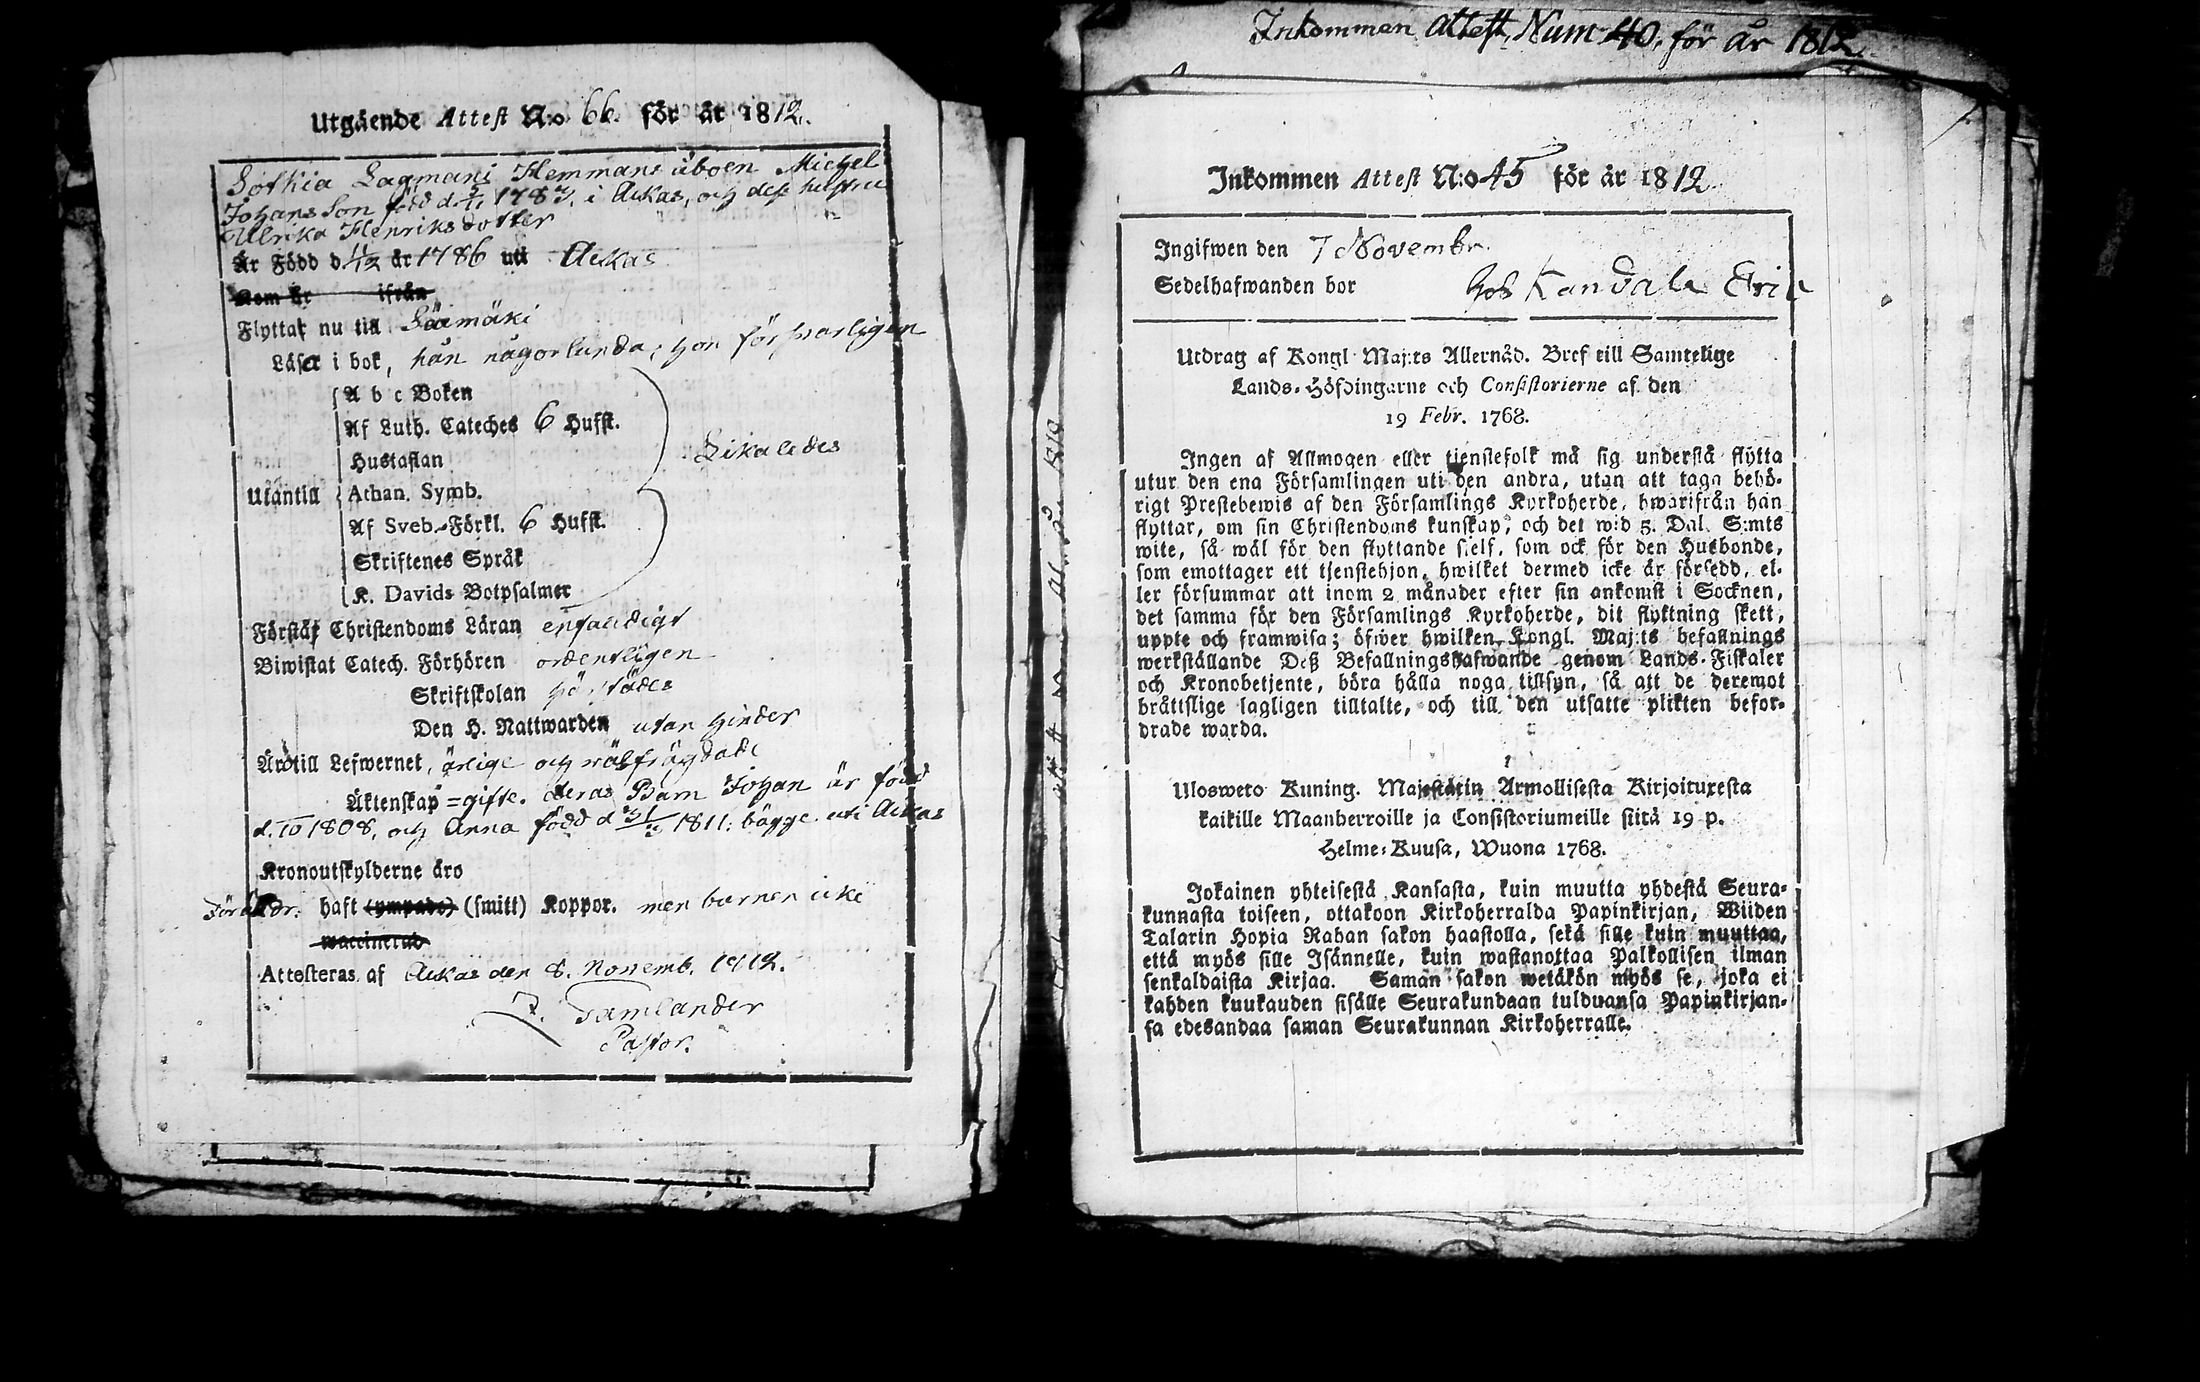 Utgående Attest N:o 66. för år 1812.
Sothia Lagmani Hemmans åboen Michel
Johans Son född d. 1783, i Ackas, och dess hustru
Ulrika Henriksdotter
Är Född d 11/12 år 1786 uti Ackas
Kom är ifrån
Flyttar nu till Säämäki
Läsa i bok, hån någorlunda, hon försvarligen
A b c Boken
Af Luth. Cateches 6 Hufst.
Hustaflan
Utantill Athan. Symb. Likaledes
Af Sveb. Förkl. 6 Hufst.
Skriftenes Språk
K. Davids Botpsalmer
Förstår Christendoms Läran enfaldigt
Biwistat Catech. Förhören ordentligen
Skriftskolan
Den H. Nattwarden utan hinder
Äro till Lefwernet, ärlige och välfrägdade
Äktenskap = gifte. deras Barn Johan är född
d. 1808, och Anna född d 1811. bägge uti Ackas
Kronoutskylderne äro
Föräldr. haft (ympade) (smitt) Koppor. men barnen icke
waccinerad
Attesteras af Ackas den 8. Novemb. 1812.
Tamlander
Pastor.
Inkommen attest, Num 40. för år 1812.
Inkommen Attest N:o 45 för år 1812
Ingifwen den 7 Novembr.
Sedelhafwanden bor hos Kandala Eric
Utdrag af Kongl. Maj:ts Allernåd. Bref till Samtelige
Lands-Höfdingarne och Consistorierne af den
19 Febr. 1768.
Ingen af Allmogen eller tjenstefolk må sig understå flytta
utur den ena Församlingen uti den andra, utan att taga behö-
rigt Prestebewis af den Församlings Kyrkoherde, hwarifrån han
flyttar, om sin Christendoms kunskap, och det wid 5. Dal. S:mts
wite, så wäl för den flyttande sjelf, som ock för den Husbonde,
som emottager ett tjenstehjon, hwilket dermed icke är försedd, el-
ler försummar att inom 2 månader efter sin ankomst i Socknen,
det samma för den Församlings Kyrkoherde, dit flyttning skett,
uppte och framwisa; öfwer hwilken Kongl. Maj:ts befallnings
werkställande Deß Befallningshafwande genom Lands-Fiskaler
och Kronobetjente, böra hålla noga tillsyn, så att de deremot
bråttslige lagligen tilltalte, och till den utsatte plikten befor-
drade warda.
Ulosweto Kuning. Majestätin Armollisesta Kirjoituxesta
kaikille Maanherroille ja Consistoriumeille siitä 19 p.
Helme-Kuusa, Wuona 1768.
Jokainen yhteisestä Kansasta, kuin muutta yhdestä Seura-
kunnasta toiseen, ottakoon Kirkoherralda Papinkirjan, Wiiden
Talarin Hopia Rahan sakon haastolla, sekä sille kuin muuttaa,
että myös sille Isännelle, kuin wastanottaa Palkollisen ilman
senkaldaista Kirjaa. Saman sakon wetäkön myös se, joka ei
kahden kuukauden sisälle Seurakundaan tulduansa Papinkirjan-
sa edesandaa saman Seurakunnan Kirkoherralle.